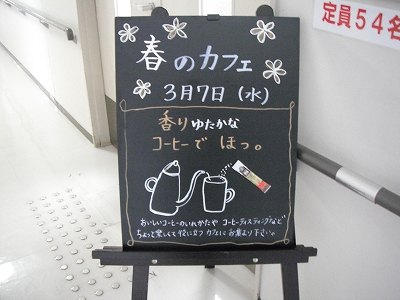 定員54名
春のカフェ
3月7日(水)
香りゆたかな
コーヒーで ほっ。
おいしいコーヒーのいれかたや コーヒーテイスティングなど
ちょっと楽しくて役に立つ カフェにお集まり下さい。